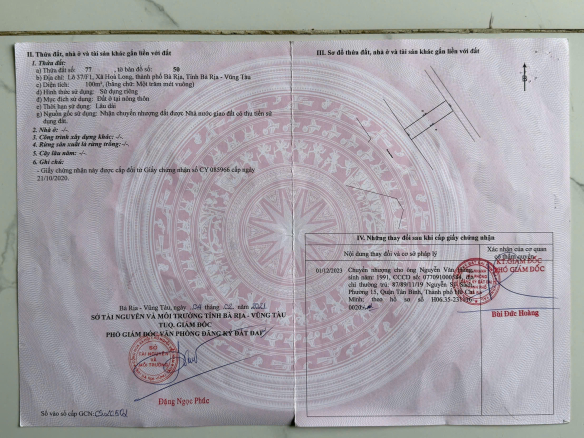 II. Thửa đất, nhà ở và tài sản khác gắn liền với đất
1. Thửa đất:
a) Thửa đất số: 77 , tờ bản đồ số: 50
b) Địa chỉ: Lô 37/F1, Xã Hoà Long, thành phố Bà Rịa, Tỉnh Bà Rịa - Vũng Tàu
c) Diện tích: 100m², (bằng chữ: Một trăm mét vuông)
d) Hình thức sử dụng: Sử dụng riêng
đ) Mục đích sử dụng: Đất ở tại nông thôn
e) Thời hạn sử dụng: Lâu dài
g) Nguồn gốc sử dụng: Nhận chuyển nhượng đất được Nhà nước giao đất có thu tiền sử
dụng đất.
2. Nhà ở: -/-.
3. Công trình xây dựng khác: -/-.
4. Rừng sản xuất là rừng trồng: -/-.
5. Cây lâu năm: -/-.
6. Ghi chú:
- Giấy chứng nhận này được cấp đổi từ Giấy chứng nhận số CY 085966 cấp ngày
21/10/2020.
Bà Rịa - Vũng Tàu, ngày 04 tháng 02 năm 2021
SỞ TÀI NGUYÊN VÀ MÔI TRƯỜNG TỈNH BÀ RỊA - VŨNG TÀU
TUQ. GIÁM ĐỐC
PHÓ GIÁM ĐỐC VĂN PHÒNG ĐĂNG KÝ ĐẤT ĐAI
SỞ
TÀI NGUYÊN
VÀ
MÔI TRƯỜNG
Đặng Ngọc Phúc
Số vào sổ cấp GCN:
III. Sơ đồ thửa đất, nhà ở và tài sản khác gắn liền với đất
B
IV. Những thay đổi sau khi cấp giấy chứng nhận
Nội dung thay đổi và cơ sở pháp lý
Xác nhận của cơ quan
có thẩm quyền
01/12/2023
Chuyển nhượng cho ông Nguyễn Văn
sinh năm: 1991, CCCD số:
chỉ thường trú: 87/89/11/19 Nguyễn Sỹ
Phường 15, Quận Tân Bình, Thành phố Hồ Chí
Minh; theo hồ sơ số
KT.GIÁM ĐỐC
PHÓ GIÁM ĐỐC
Bùi Đức Hoàng